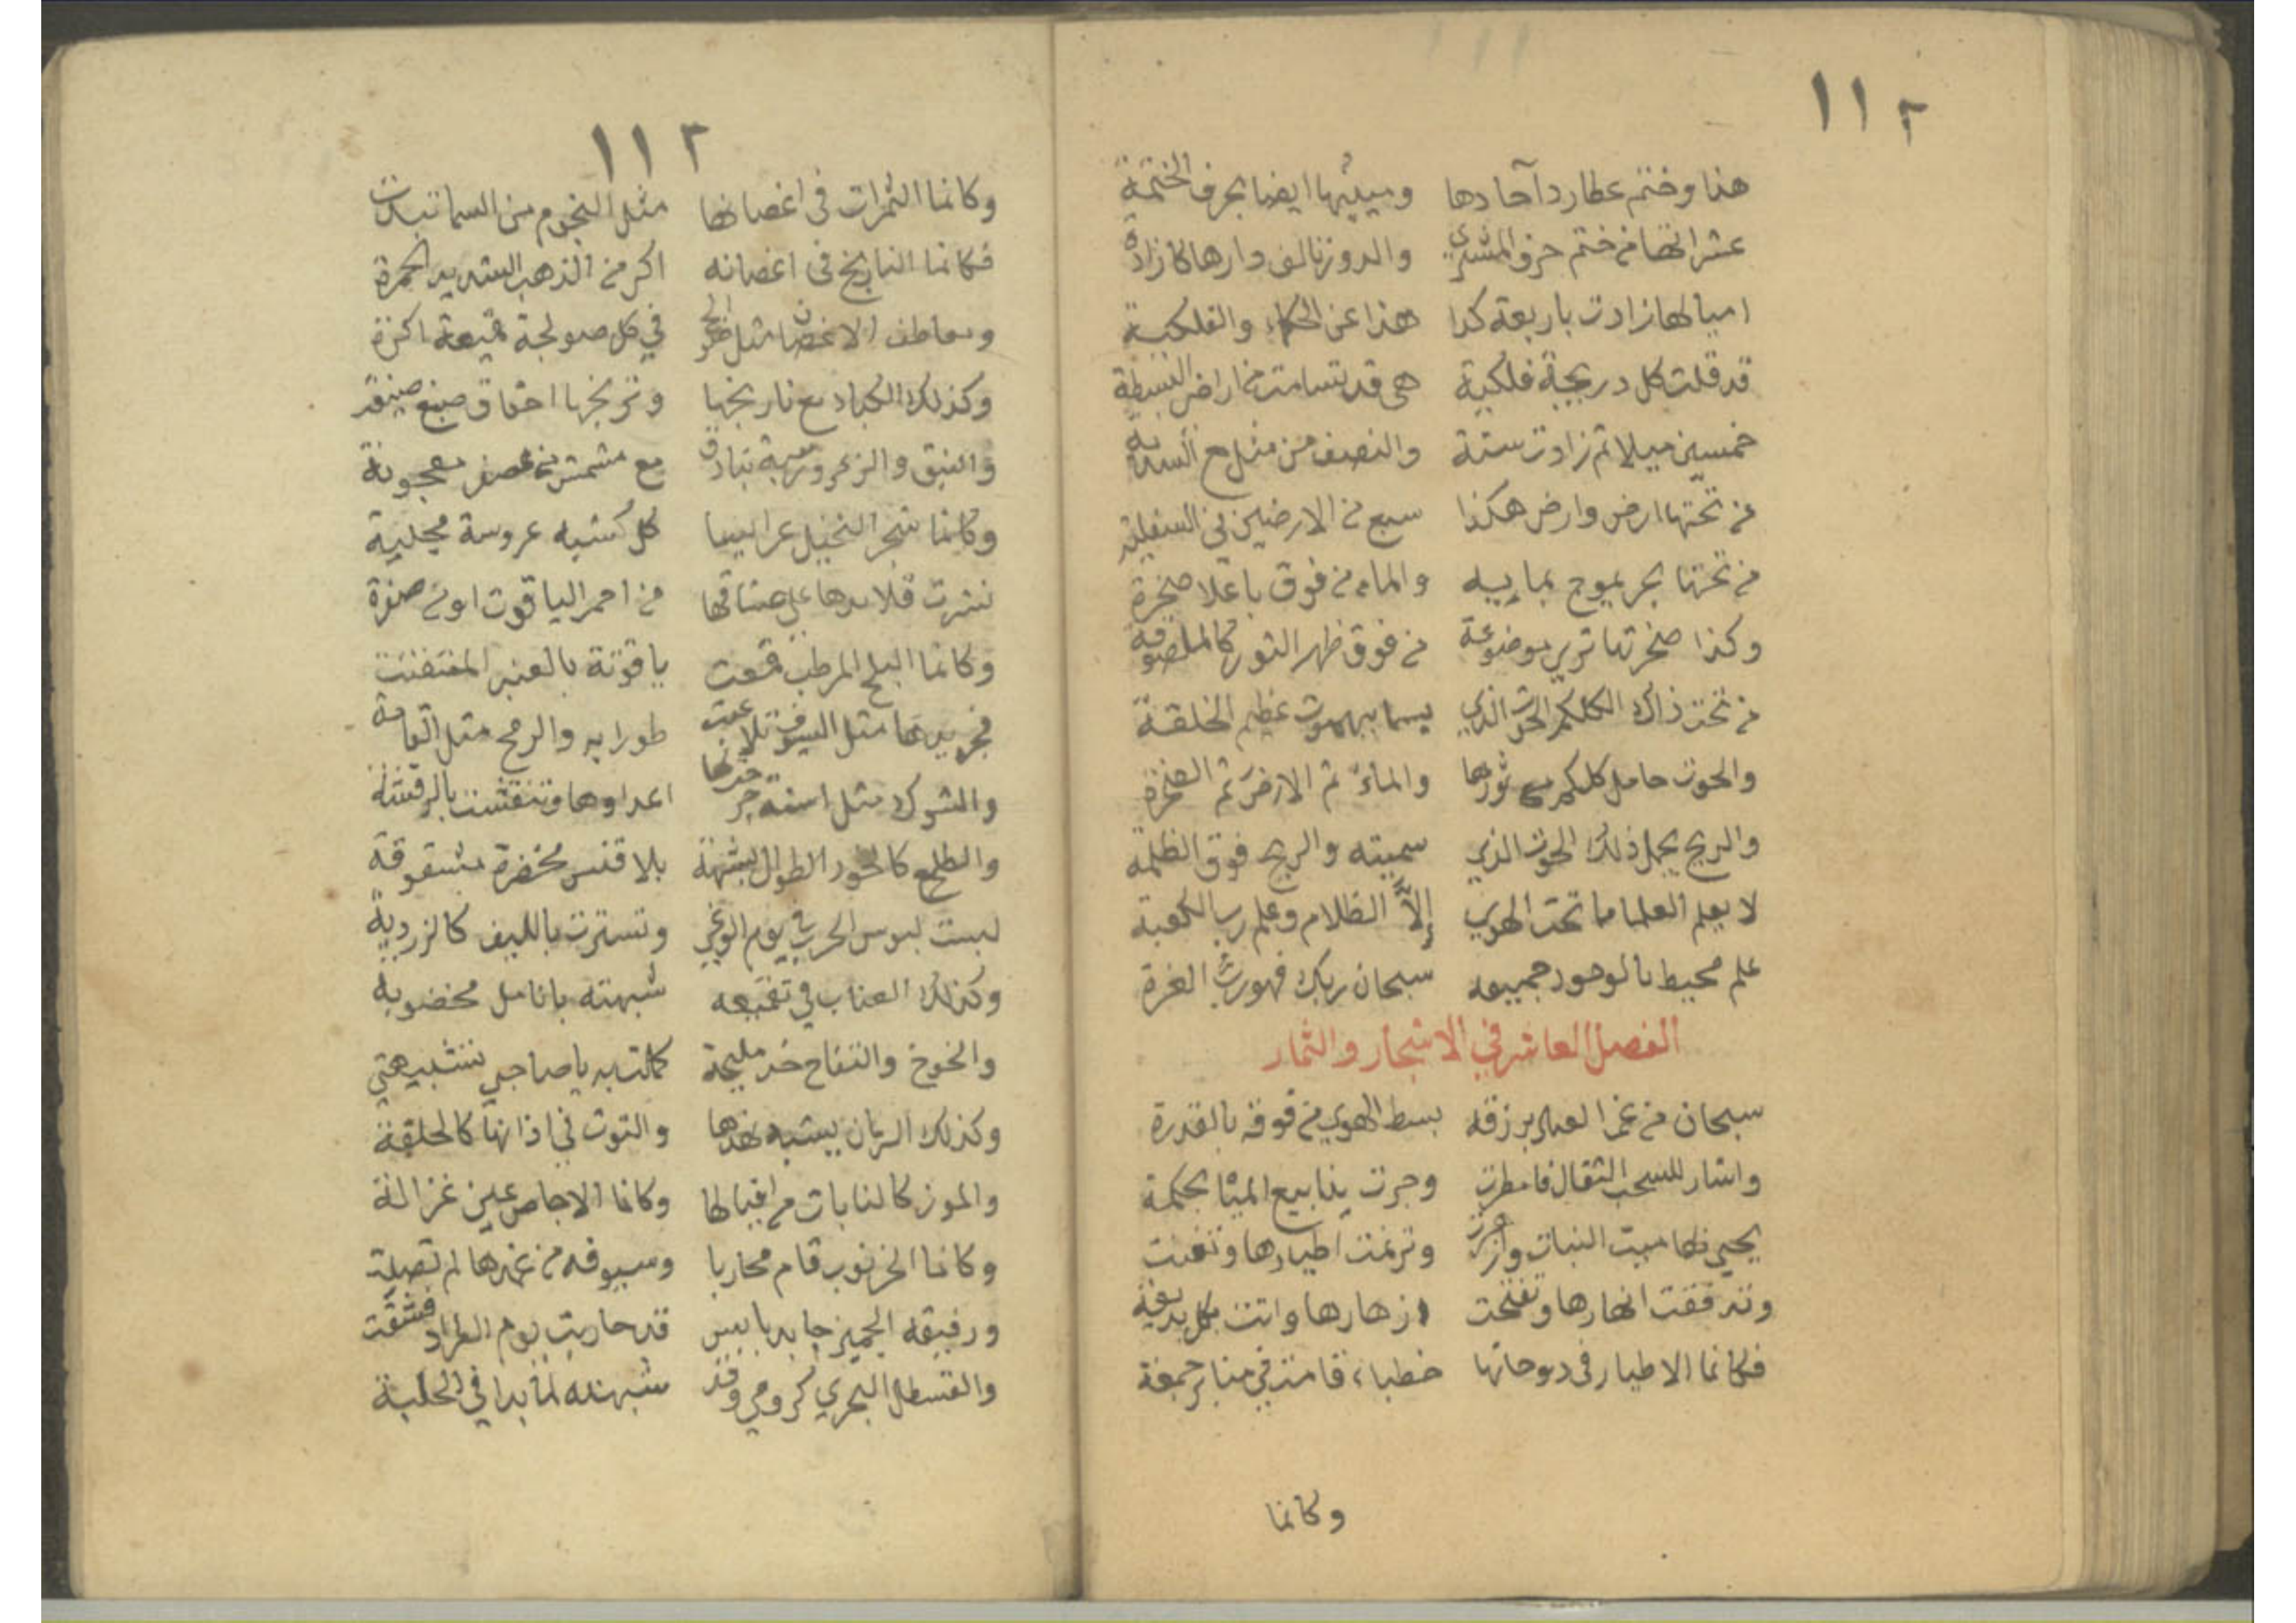 ١١٢
هذا وختم عطارد آحادها وميئيها ايضا بحرف الختمة
عشراتها من ختم حرف المشتري والدور نالف دارها كا زادة
اميالها زادت باربعة كذا هذا عن الحكماء والفلكية
قد قلت كل دريجة فلكية هى قد تسامت من اراض البسيطة
خمسين ميلا ثم زادت ستة والنصف من مثل مع
من تحتها ارض وارض هكذا سبع من الارضين فى السفلية
من تحتها بحر يموج بمايه والماء من فوق باعلا صخرة
وكذا صخرتها ترى موضوعة من فوق ظهر الثور كالملصوقة
من تحت ذاك الكلكم الحوت الذي يسما ببهموت عظيم الخلقة
والحوت حامل كلكم مع ثورها والماء ثم الارض ثم الصخرة
والريح يحمل ذلك الحوت الذي سميته والريح فوق الظلمه
لا يعلم العلما ما تحت الهوي إلا الظلام وعلم رب الكعبة
علم محيط بالوجود جميعه سبحان ربك فهو رب العزة
الفصل العاشر في الاشجار والثمار
سبحان من عم العباد برزقه بسط الهوي من فوقه بالقدرة
واشار للسحب الثقال فامطرت وجرت ينابيع الميا بحكمة
يحيي بها ميت النبات وازهرت وترنمت اطيارها وتغنت
وتدفقت انهارها وتفتحت ازهارها واتت بكل بديعة
فكانما الاطيار فى دوحاتها خطباء قامت في منابر جمعة
وكانما
١١٢
وكانما الثمرات فى اغصانها مثل النجوم من السما تبدت
فكانما النارنج فى اغصانه اكر من الذهب الشديد الحمرة
ومعاطف الاغصان مثل في كل صولجة اكرة
وكذلك الكباد مع نارنجها وترنجها احقاق صبغ
والنبق والزعرور تبة بنادق مع مشمش من عصفر معجونة
وكانما شجر النخيل عرايسا كل كشبه عروسة مجلية
نثرت قلايدها على من احمر الياقوت او من صفرة
وكانما البلح المرطب قمعت ياقوتة بالعنبر
فجريدها مثل السيوف تلاعبت طورا به والرمح مثل القامة
والشوك مثل اسنة اعداوها وتنقشت بالرقشة
والطلع كالخود الطوال بلا قنس مخضرة مشقوقة
لبست لبوس الحرب في يوم الوغى وتسترت بالليف كالزردية
وكذلك العناب في تقميعه شبهته بانامل مخضوبه
والخوخ والتفاح خد مليحة كملت به يا صاحبي تشبيهتي
وكذلك الرمان يشبه نهدها والتوت في اذانها كالحلقة
والموز كالنابات من افيالها وكانما الاجاص عين غزالة
وكانما الخرنوب قام محاربا وسيوفه من غمدها لم تصلت
ورفيقه الجميز جا بدبابيس قد حاربت يوم الطراد فشقت
والقسطل البحري كرومي وقد شبهته لما بدا في الحلبة